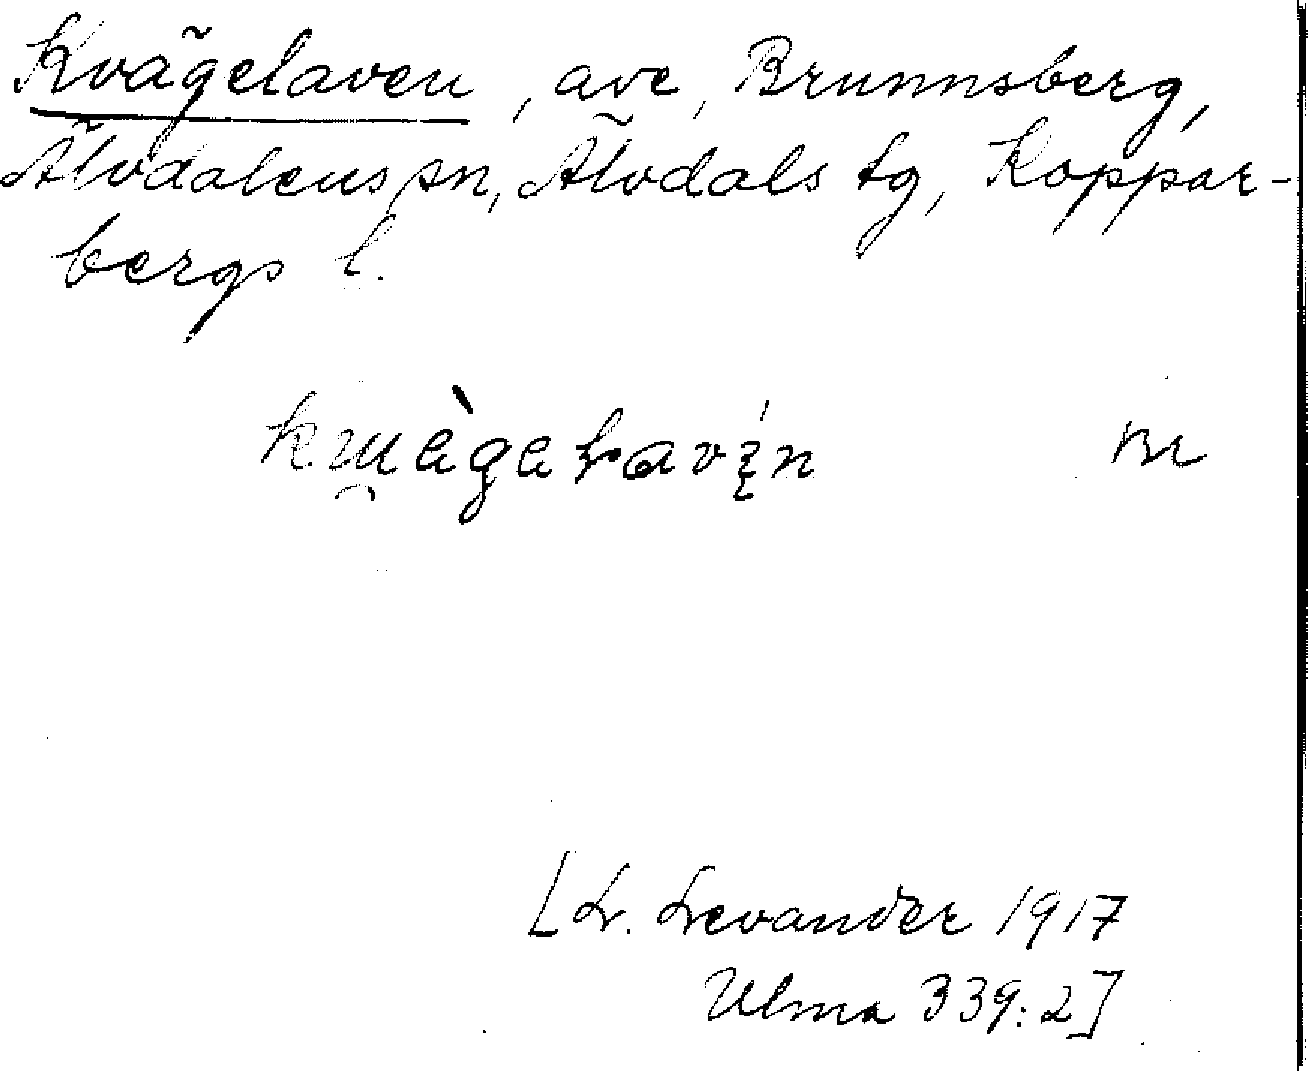 Kvägelaven, ave, Brunnsberg,
Älvdalens sn, Älvdals tg, Koppar-
bergs l.
[L. Levander 1917
Ulma 339:2]